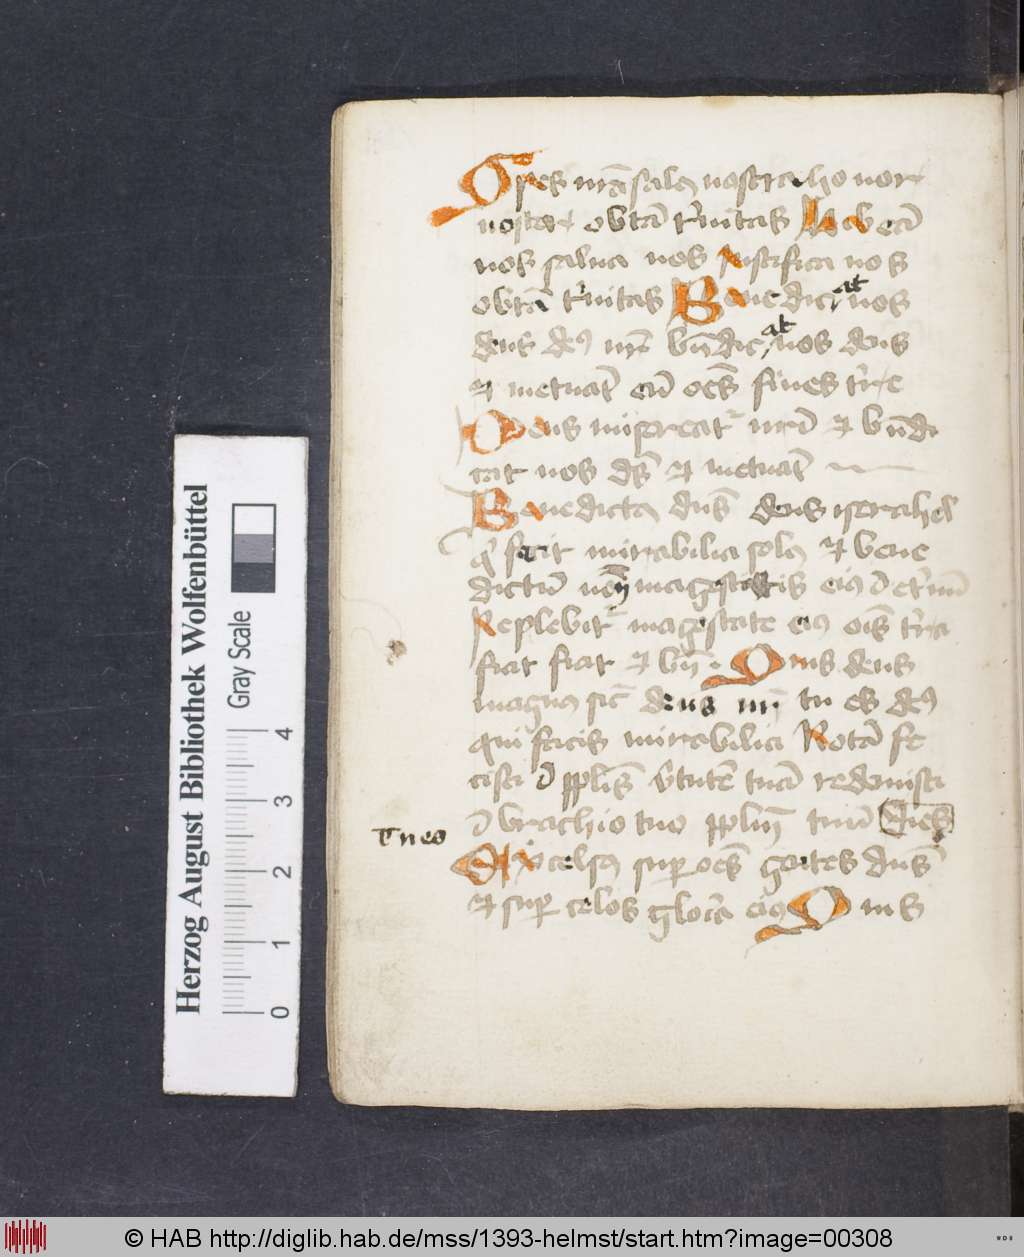 Spes nrā salus nostra ho nor
noster o btā trinitas Libeā
nos salua nos Justifica nos
o btā trinitas Benedicat nos
deus deus nr bndicat nos deus
et metuāt eū oēs fines trre
Deus misereatr nri et bndi
cat nos ds et metuāt
Benedictus dūs deus israhel
q facit mirabilia solus et bene
dictū nōn magestatis eius ī etnū
Replebitr magestate eius oīs trra
fiat fiat
Quis deus
magnus sic deus nr tu es deus
qui facis mirabilia Notā fe
cisti ī pplīs vtutē tuā redemisti
ī brachio tuo pplm tuū
Excelsus super oēs gentes dūs
et super celos gloria eius Quis
Herzog August Bibliothek Wolfenbüttel
Gray Scale
0 1 2 3 4
© HAB http://diglib.hab.de/mss/1393-helmst/start.htm?image=00308